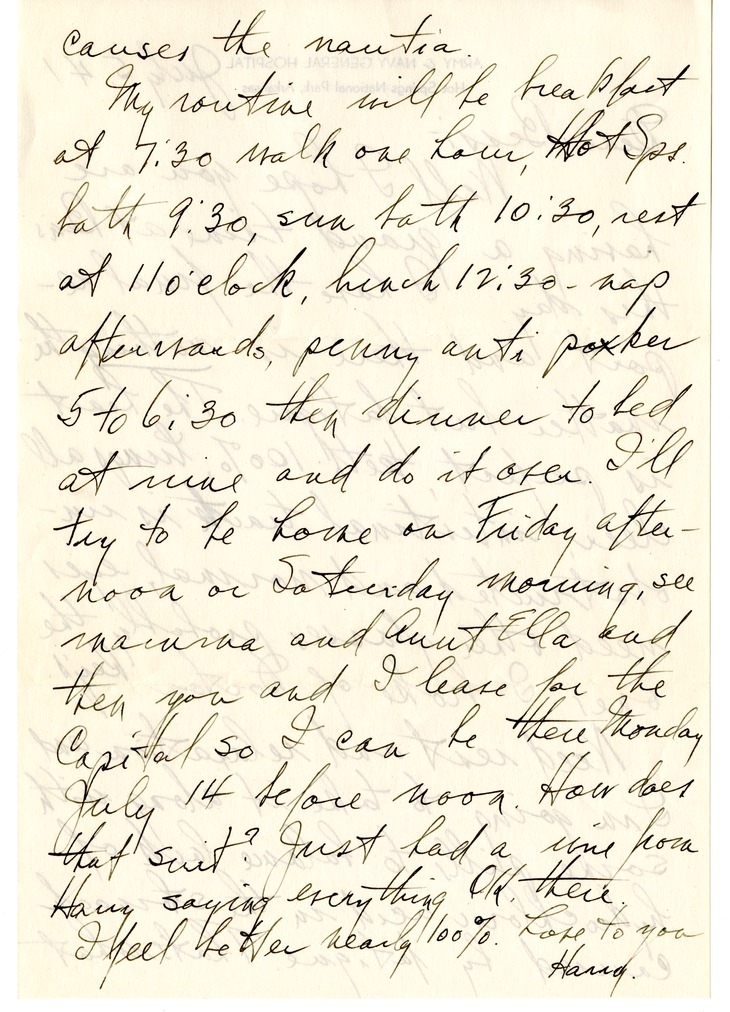 causes the nautia.
My routine will be breakfast
at 7:30 walk one hour, Hot Sps.
bath 9:30, sun bath 10:30, rest
at 11 o'clock, lunch 12:30 - nap
afterwards, penny anti poker
5 to 6:30 then dinner to bed
at nine and do it over. I'll
try to be home on Friday after-
noon or Saturday morning, see
mamma and Aunt Ella and
then you and I leave for the
Capital so I can be there Monday
July 14 before noon. How does
that suit? Just had a wire from
Harry saying everything OK. there.
I feel better nearly 100%. Love to you
Harry.